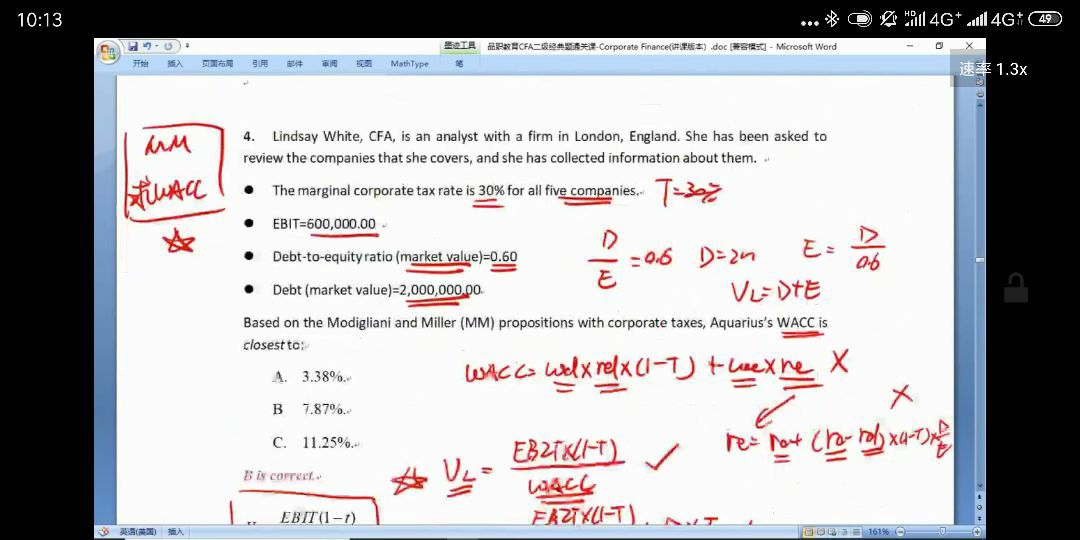 10:13
HD 4G+ 4G+ 49
墨迹工具
品职教育CFA二级经典题通关课-Corporate Finance(讲课版本) .doc [兼容模式] - Microsoft Word
开始 插入 页面布局 引用 邮件 审阅 视图 MathType 笔
速率 1.3x
MM
求WACC
4. Lindsay White, CFA, is an analyst with a firm in London, England. She has been asked to
review the companies that she covers, and she has collected information about them.
● The marginal corporate tax rate is 30% for all five companies. T=30%
● EBIT=600,000.00
● Debt-to-equity ratio (market value)=0.60
D/E = 0.6 D=2m E = D/0.6
VL=D+E
● Debt (market value)=2,000,000.00
Based on the Modigliani and Miller (MM) propositions with corporate taxes, Aquarius's WACC is
closest to:
WACC= wd×rd×(1-T) + we×re X
A. 3.38%.
B 7.87%.
C. 11.25%.
X
re= ro+ (ro-rd)×(1-T)×D/E
VL = EBIT×(1-T)/WACC ✓
B is correct.
EBIT(1−t)
EBIT×(1-T)
英语(美国) 插入 161%